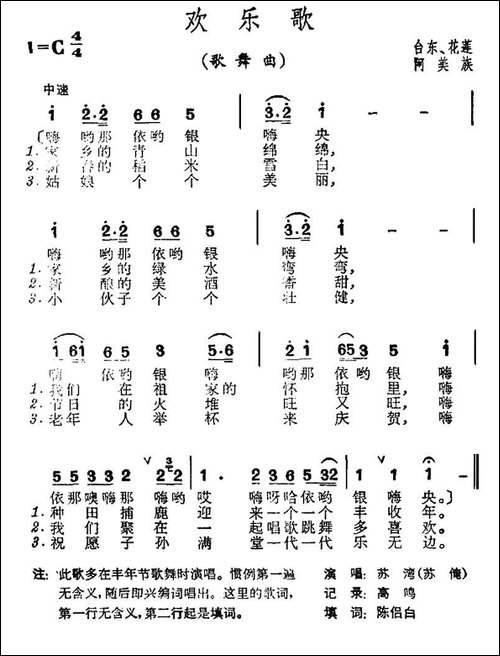 欢乐歌
1=C 4/4
(歌舞曲)
台东、花莲
阿美族
中速
i 2·2 66 5 | 3·2 i - - |
〔嗨哟那依哟银 嗨央
1.家乡的青山 绵绵,
2.新舂的稻米 雪白,
3.姑娘个个 美丽,
i 2·2 66 5 | 3·2 i - - |
嗨哟那依哟银 嗨央
1.家乡的绿水 弯弯,
2.新酿的美酒 香甜,
3.小伙子个个 壮健,
i 6i 65 3 5·6 | 2i 653 5 i |
嗨依哟银嗨 哟那依哟银嗨
1.我们在祖家的 怀抱里,嗨
2.节日的火堆 旺又旺,嗨
3.老年人举杯 来庆贺,嗨
55 33 22 3/2 22 | 1· 2 3 4 6 6 5 32 | 1 1 1 - ‖
依那噢嗨那嗨哟 哎嗨呀哈依哟 银嗨央。〕
1.种田捕鹿迎来一个一个丰收年。
2.我们聚在一起唱歌跳舞多喜欢。
3.祝愿子孙满堂一代一代乐无边。
注:此歌多在丰年节歌舞时演唱。惯例第一遍
无含义,随后即兴编词唱出。这里的歌词,
第一行无含义,第二行起是填词。
演唱:苏湾(苏俺)
记录:高鸣
填词:陈侣白